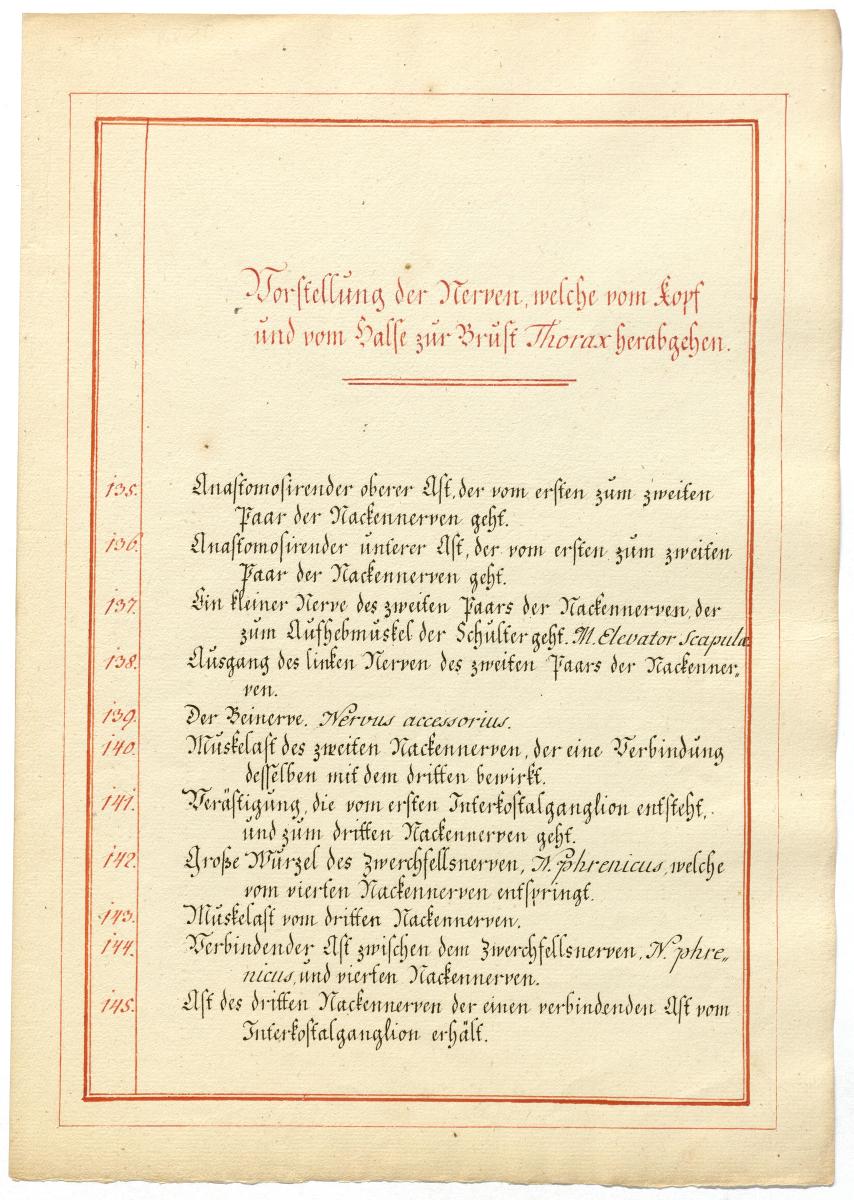 Vorstellung der Nerven, welche vom Kopf
und vom Halse zur Brust Thorax herabgehen.
135. Anastomosirender oberer Ast, der vom ersten zum zweiten
Paar der Nackennerven geht.
136. Anastomosirender unterer Ast, der vom ersten zum zweiten
Paar der Nackennerven geht.
137. Ein kleiner Nerve des zweiten Paars der Nackennerven, der
zum Aufhebmuskel der Schulter geht. M. Elevator Scapulæ
138. Ausgang des linken Nerven des zweiten Paars der Nackenner„
ven.
139. Der Beinerve. Nervus accessorius.
140. Muskelast des zweiten Nackennerven, der eine Verbindung
desselben mit dem dritten bewirkt.
141. Verästigung, die vom ersten Interkostalganglion entsteht,
und zum dritten Nackennerven geht.
142. Große Wurzel des Zwerchfellsnerven, N. phrenicus, welche
vom vierten Nackennerven entspringt.
143. Muskelast vom dritten Nackennerven.
144. Verbindender Ast zwischen dem Zwerchfellsnerven, N. phre„
nicus, und vierten Nackennerven.
145. Ast des dritten Nackennerven der einen verbindenden Ast vom
Interkostalganglion erhält.